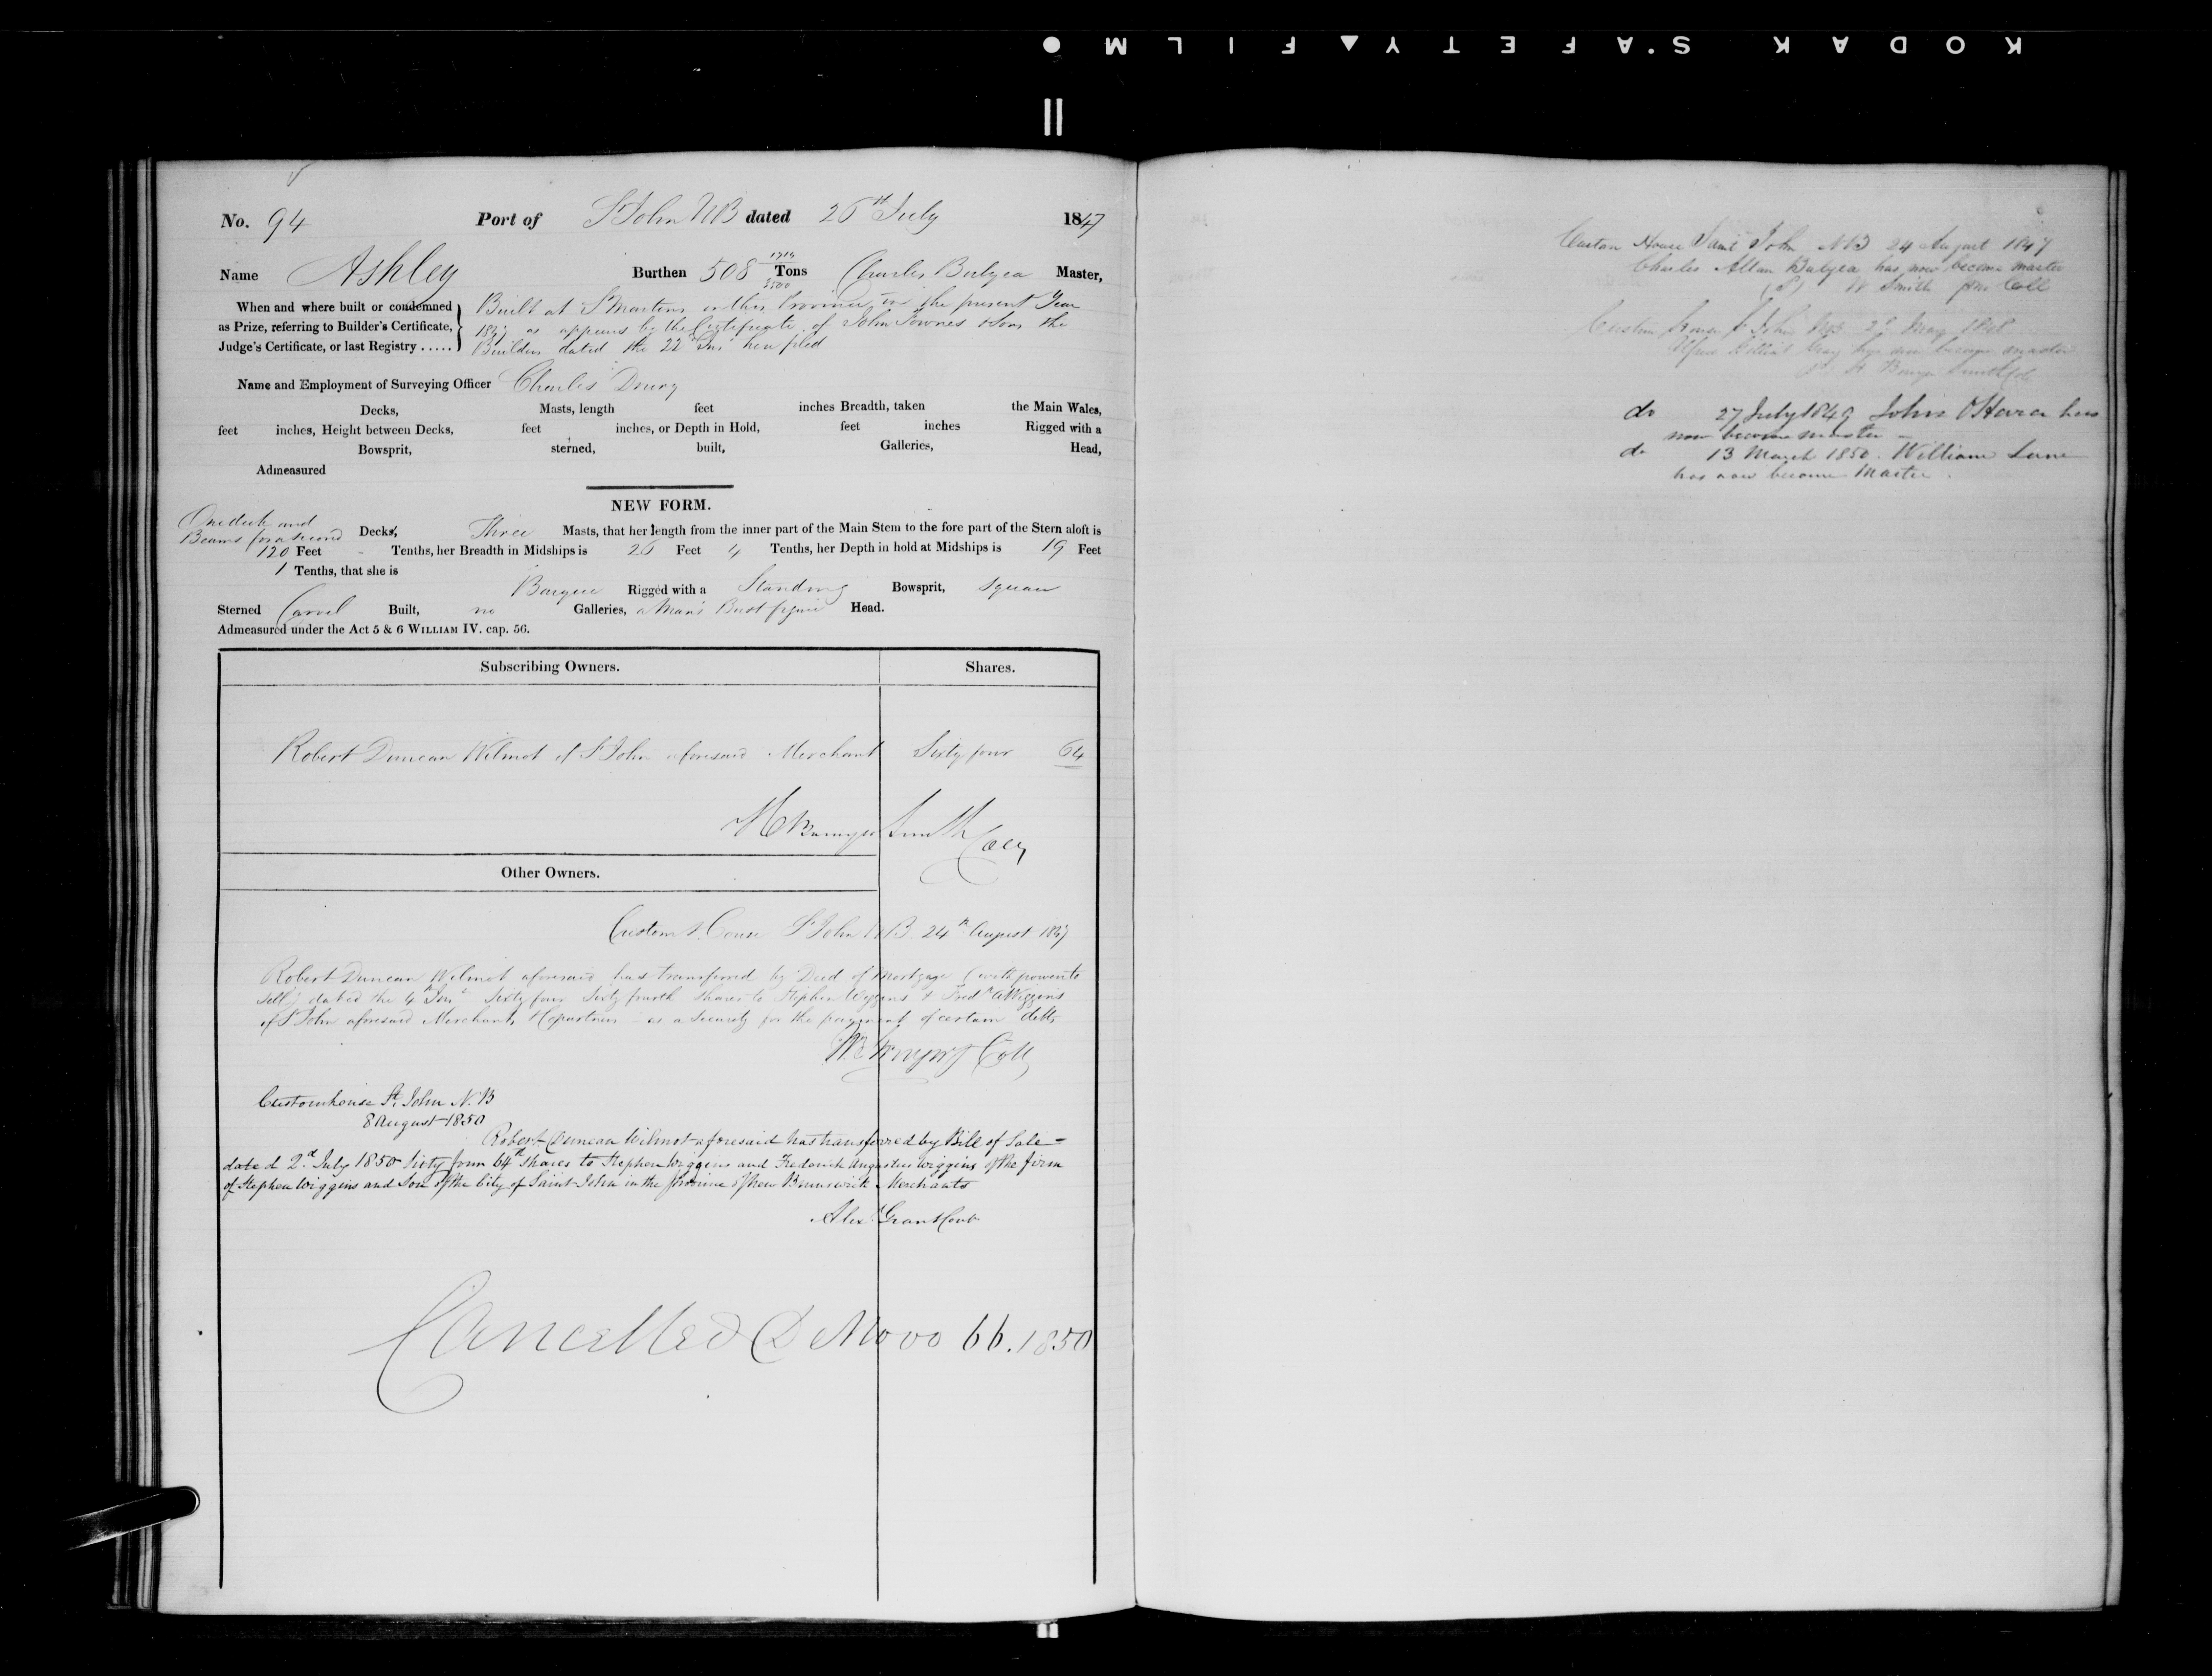 KODAK S.AFETY▲FILM●
No. 94 Port of St John NB dated 26th July 1847
Name Ashley Burthen 508 1714/3500 Tons Charles Bulyea Master,
When and where built or condemned
as Prize, referring to Builder's Certificate,
Judge's Certificate, or last Registry .....
Built at St Martins in this Province in the present Year
1847 as appears by the Certificate of John Fownes & Sons the
Builders dated the 22 Inst here filed
Name and Employment of Surveying Officer Charles Drury
Decks, Masts, length feet inches Breadth, taken the Main Wales,
feet inches, Height between Decks, feet inches, or Depth in Hold, feet inches Rigged with a
Bowsprit, sterned, built, Galleries, Head,
Admeasured
NEW FORM.
One deck and
Beams for a second Decks, Three Masts, that her length from the inner part of the Main Stem to the fore part of the Stern aloft is
120 Feet - Tenths, her Breadth in Midships is 26 Feet 4 Tenths, her Depth in hold at Midships is 19 Feet
1 Tenths, that she is
Barque Rigged with a Standing Bowsprit, Square
Sterned Carvel Built, no Galleries, a Man's Bust figure Head.
Admeasured under the Act 5 & 6 WILLIAM IV. cap. 56.
Subscribing Owners. Shares.
Robert Duncan Wilmot of St John aforesaid Merchant Sixty four 64
H Bowyer Smith Coll
Other Owners.
Custom House St John NB 24th August 1847
Robert Duncan Wilmot aforesaid has transferred by Deed of Mortgage (with power to
sell) dated the 4th Inst Sixty four Sixty fourth shares to Stephen Wiggins & Fredk A Wiggins
of St John aforesaid Merchants & Copartners as a Security for the payment of certain debts
Coll
Customhouse St. John N.B
8 August 1850
Robert Duncan Wilmot aforesaid has transferred by Bill of Sale
dated 2d July 1850 Sixty four 64th shares to Stephen Wiggins and Frederick Augustus Wiggins of the firm
of Stephen Wiggins and Son of the City of Saint John in the province of New Brunswick Merchants
Alexr Grant Cont
Cancelled De Novo 66. 1850
Custom House Saint John NB 24 August 1847
Charles Allan Bulyea has now become master
W Smith Coll
Custom House St John NB 2d May 1848
Gray has now become master
H Bowyer Smith Coll
do 27 July 1849 John O'Hara has
now become master
do 13 March 1850. William Lane
has now become Master.